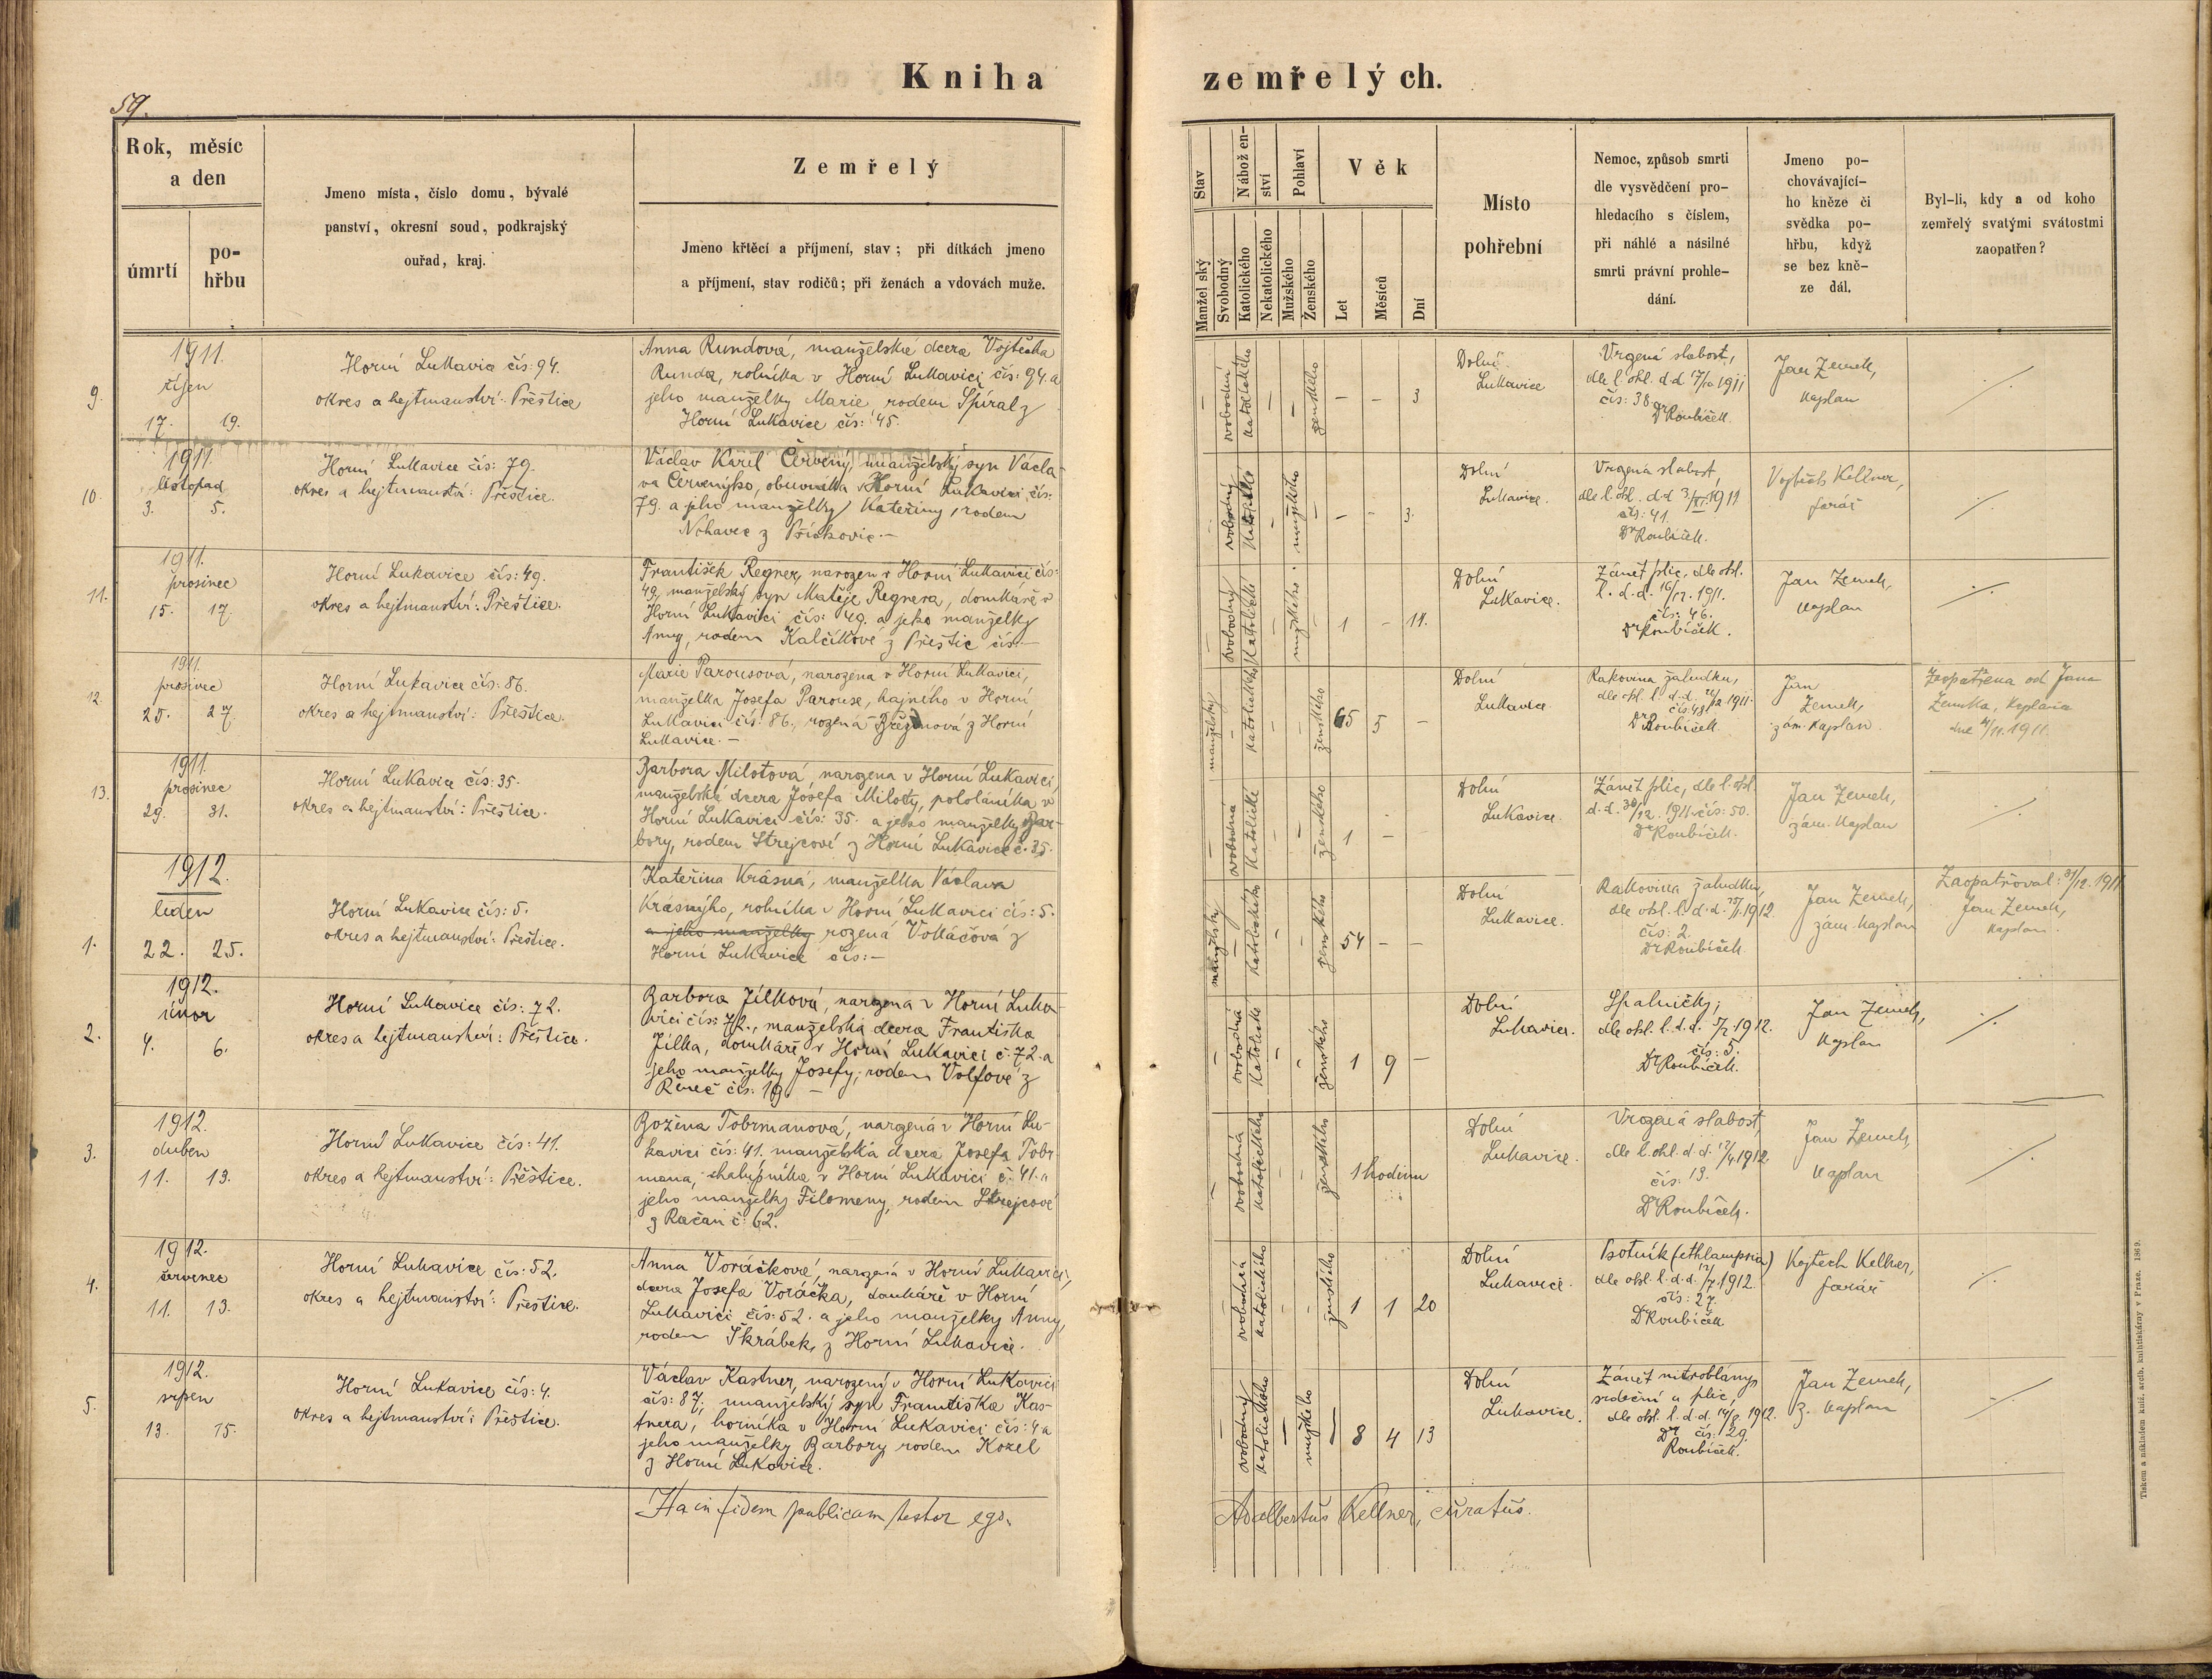 Kniha zemřelých.
59.
Rok, měsíc
a den
úmrtí
po-
hřbu
Jmeno místa, číslo domu, bývalé
panství, okresní soud, podkrajský
ouřad, kraj.
Zemřelý
Jmeno křtěcí a příjmení, stav; při dítkách jmeno
a příjmení, stav rodičů; při ženách a vdovách muže.
Stav
Manželský
Svobodný
Nábožen-
ství
Katolického
Nekatolického
Pohlaví
Mužského
Ženského
Věk
Let
Měsíců
Dní
Místo
pohřební
Nemoc, způsob smrti
dle vysvědčení pro-
hledacího s číslem,
při náhlé a násilné
smrti právní prohle-
dání.
Jmeno po-
chovávající-
ho kněze či
svědka po-
hřbu, když
se bez kně-
ze dál.
Byl-li, kdy a od koho
zemřelý svatými svátostmi
zaopatřen?
9.
1911.
říjen
17. 19.
Horní Lukavice čís: 94.
okres a hejtmanství: Přeštice
Anna Rundová, manželská dcera Vojtěcha
Runda, rolníka v Horní Lukavici čís: 94. a
jeho manželky Marie rodem Spíral z
Horní Lukavice čís: 45.
svobodná
katolického
ženského
– – 3
Dolní
Lukavice
Vrozená slabost,
dle l. ohl. d.d 17/10 1911
čís: 38
Dr Roubíček.
Jan Zemek,
kaplan
10.
1911.
listopad
3. 5.
Horní Lukavice čís: 79.
okres a hejtmanství: Přeštice.
Václav Karel Červený, manželský syn Václa-
va Červenýho, obuvníka v Horní Lukavici, čís:
79. a jeho manželky Kateřiny, rodem
Nohavec z Příchovic. –
svobodný
mužského
– – 3.
Dolní
Lukavice.
Vrozená slabost,
dle l. ohl. d.d 3/XI. 1911
čís: 41.
Dr Roubíček.
Vojtěch Kellner,
farář
11.
1911.
prosinec
15. 17.
Horní Lukavice čís: 49.
okres a hejtmanství: Přeštice.
František Regner, narozen v Horní Lukavici čís:
49, manželský syn Matěje Regnera, domkáře v
Horní Lukavici čís: 49. a jeho manželky
Anny, rodem Kalčíkové z Přeštic čís: –
svobodný
katolické
mužského
1 – 11.
Dolní
Lukavice.
Zánět plic, dle ohl.
l. d.d. 16/12. 1911.
čís: 46.
Dr Roubíček.
Jan Zemek,
kaplan
12.
1911.
prosinec
25. 27.
Horní Lukavice čís: 86.
okres a hejtmanství: Přeštice.
Marie Parousová, narozena v Horní Lukavici,
manželka Josefa Parouse, hajného v Horní
Lukavici čís: 86., rozená Březinová z Horní
Lukavice. –
manželský
katolického
ženského
65 5 –
Dolní
Lukavice
Rakovina žaludku,
dle ohl. l. d.d. 26/12 1911.
čís: 48
Dr Roubíček.
Jan
Zemek,
zám. kaplan.
Zaopatřena od Jana
Zemka, kaplana
13.
1911.
prosinec
29. 31.
Horní Lukavice čís: 35.
okres a hejtmanství: Přeštice.
Barbora Milotová, narozena v Horní Lukavici,
manželská dcera Josefa Miloty, pololáníka v
Horní Lukavici čís: 35. a jeho manželky Bar-
bory, rodem Strejcové z Horní Lukavice č. 35.
svobodná
katolické
ženského
1 –
Dolní
Lukavice.
Zánět plic, dle l. ohl.
d.d. 30/12. 1911. čís: 50.
Dr Roubíček.
Jan Zemek,
zám. kaplan
1.
1912.
leden
22. 25.
Horní Lukavice čís: 5.
okres a hejtmanství: Přeštice.
Kateřina Krásná, manželka Václava
Krásnýho, rolníka v Horní Lukavici čís: 5.
a jeho manželky rozená Vokáčová z
Horní Lukavice čís: –
manželský
katolického
ženského
54 – –
Dolní
Lukavice.
Rakovina žaludku,
dle ohl. l. d.d. 23/1. 1912.
čís: 2.
Dr Roubíček.
Jan Zemek,
zám. kaplan
Zaopatřoval: 31/12. 1911
Jan Zemek,
kaplan.
2.
1912.
únor
4. 6.
Horní Lukavice čís: 72.
okres a hejtmanství: Přeštice.
Barbora Jílková, narozena v Horní Luka-
vici čís: 72., manželská dcera Františka
Jílka, domkáře v Horní Lukavici č. 72. a
jeho manželky Josefy, rodem Volfové z
Řeneč čís: 19. –
svobodná
katolické
ženského
1 9 –
Dolní
Lukavice.
Spalničky,
dle ohl. l. d.d. 5/2. 1912.
čís: 5.
Dr Roubíček.
Jan Zemek,
kaplan
3.
1912.
duben
11. 13.
Horní Lukavice čís: 41.
okres a hejtmanství: Přeštice.
Božena Tobrmanová, narozená v Horní Lu-
kavici čís: 41. manželská dcera Josefa Tobr
mana, chalupníka v Horní Lukavici č. 41. a
jeho manželky Filomeny, rodem Strejcové
z Račan č. 62.
svobodná
katolického
ženského
1 hodinu
Dolní
Lukavice.
Vrozená slabost,
dle l. ohl. d.d. 12/4 1912.
čís: 13.
Dr Roubíček.
Jan Zemek,
kaplan
4.
1912.
červenec
11. 13.
Horní Lukavice čís: 52.
okres a hejtmanství: Přeštice.
Anna Voráčková, narozená v Horní Lukavici,
dcera Josefa Voráčka, domkáře v Horní
Lukavici čís: 52. a jeho manželky Anny,
rodem Škrábek, z Horní Lukavice.
svobodná
katolického
ženského
1 1 20
Dolní
Lukavice.
Psotník (ethlampsia)
dle ohl. l. d.d. 12/7. 1912.
čís: 27.
Dr Roubíček
Vojtěch Kellner,
farář
5.
1912.
srpen
13. 15.
Horní Lukavice čís: 4.
okres a hejtmanství: Přeštice.
Václav Kastner, narozený v Horní Lukavici
čís: 87; manželský syn Františka Kas-
tnera, horníka v Horní Lukavici čís: 4 a
jeho manželky Barbory rodem Kozel
z Horní Lukovice.
svobodný
katolického
mužského
8 4 13
Dolní
Lukavice.
Zánět nitroblány
srdeční a plic,
dle ohl. l. d.d. 14/8. 1912.
čís: 29.
Dr Roubíček.
Jan Zemek,
z. kaplan
Ita in fidem publicam testor ego. Adalbertus Kellner, curatus.
Tiskem a nákladem kníž. arcib. knihtiskárny v Praze. 1869.